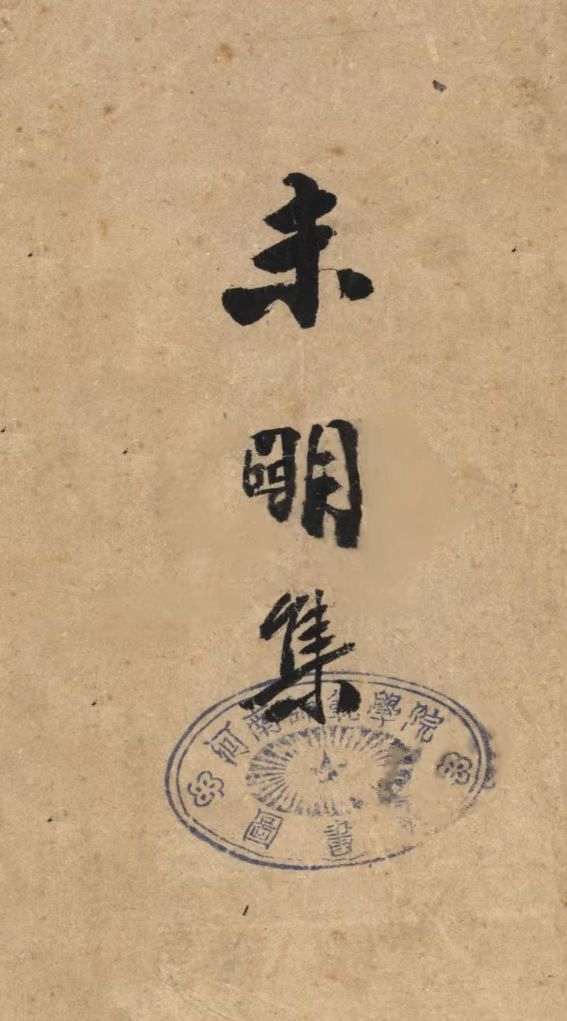 未
集
河南師範學院
圖書